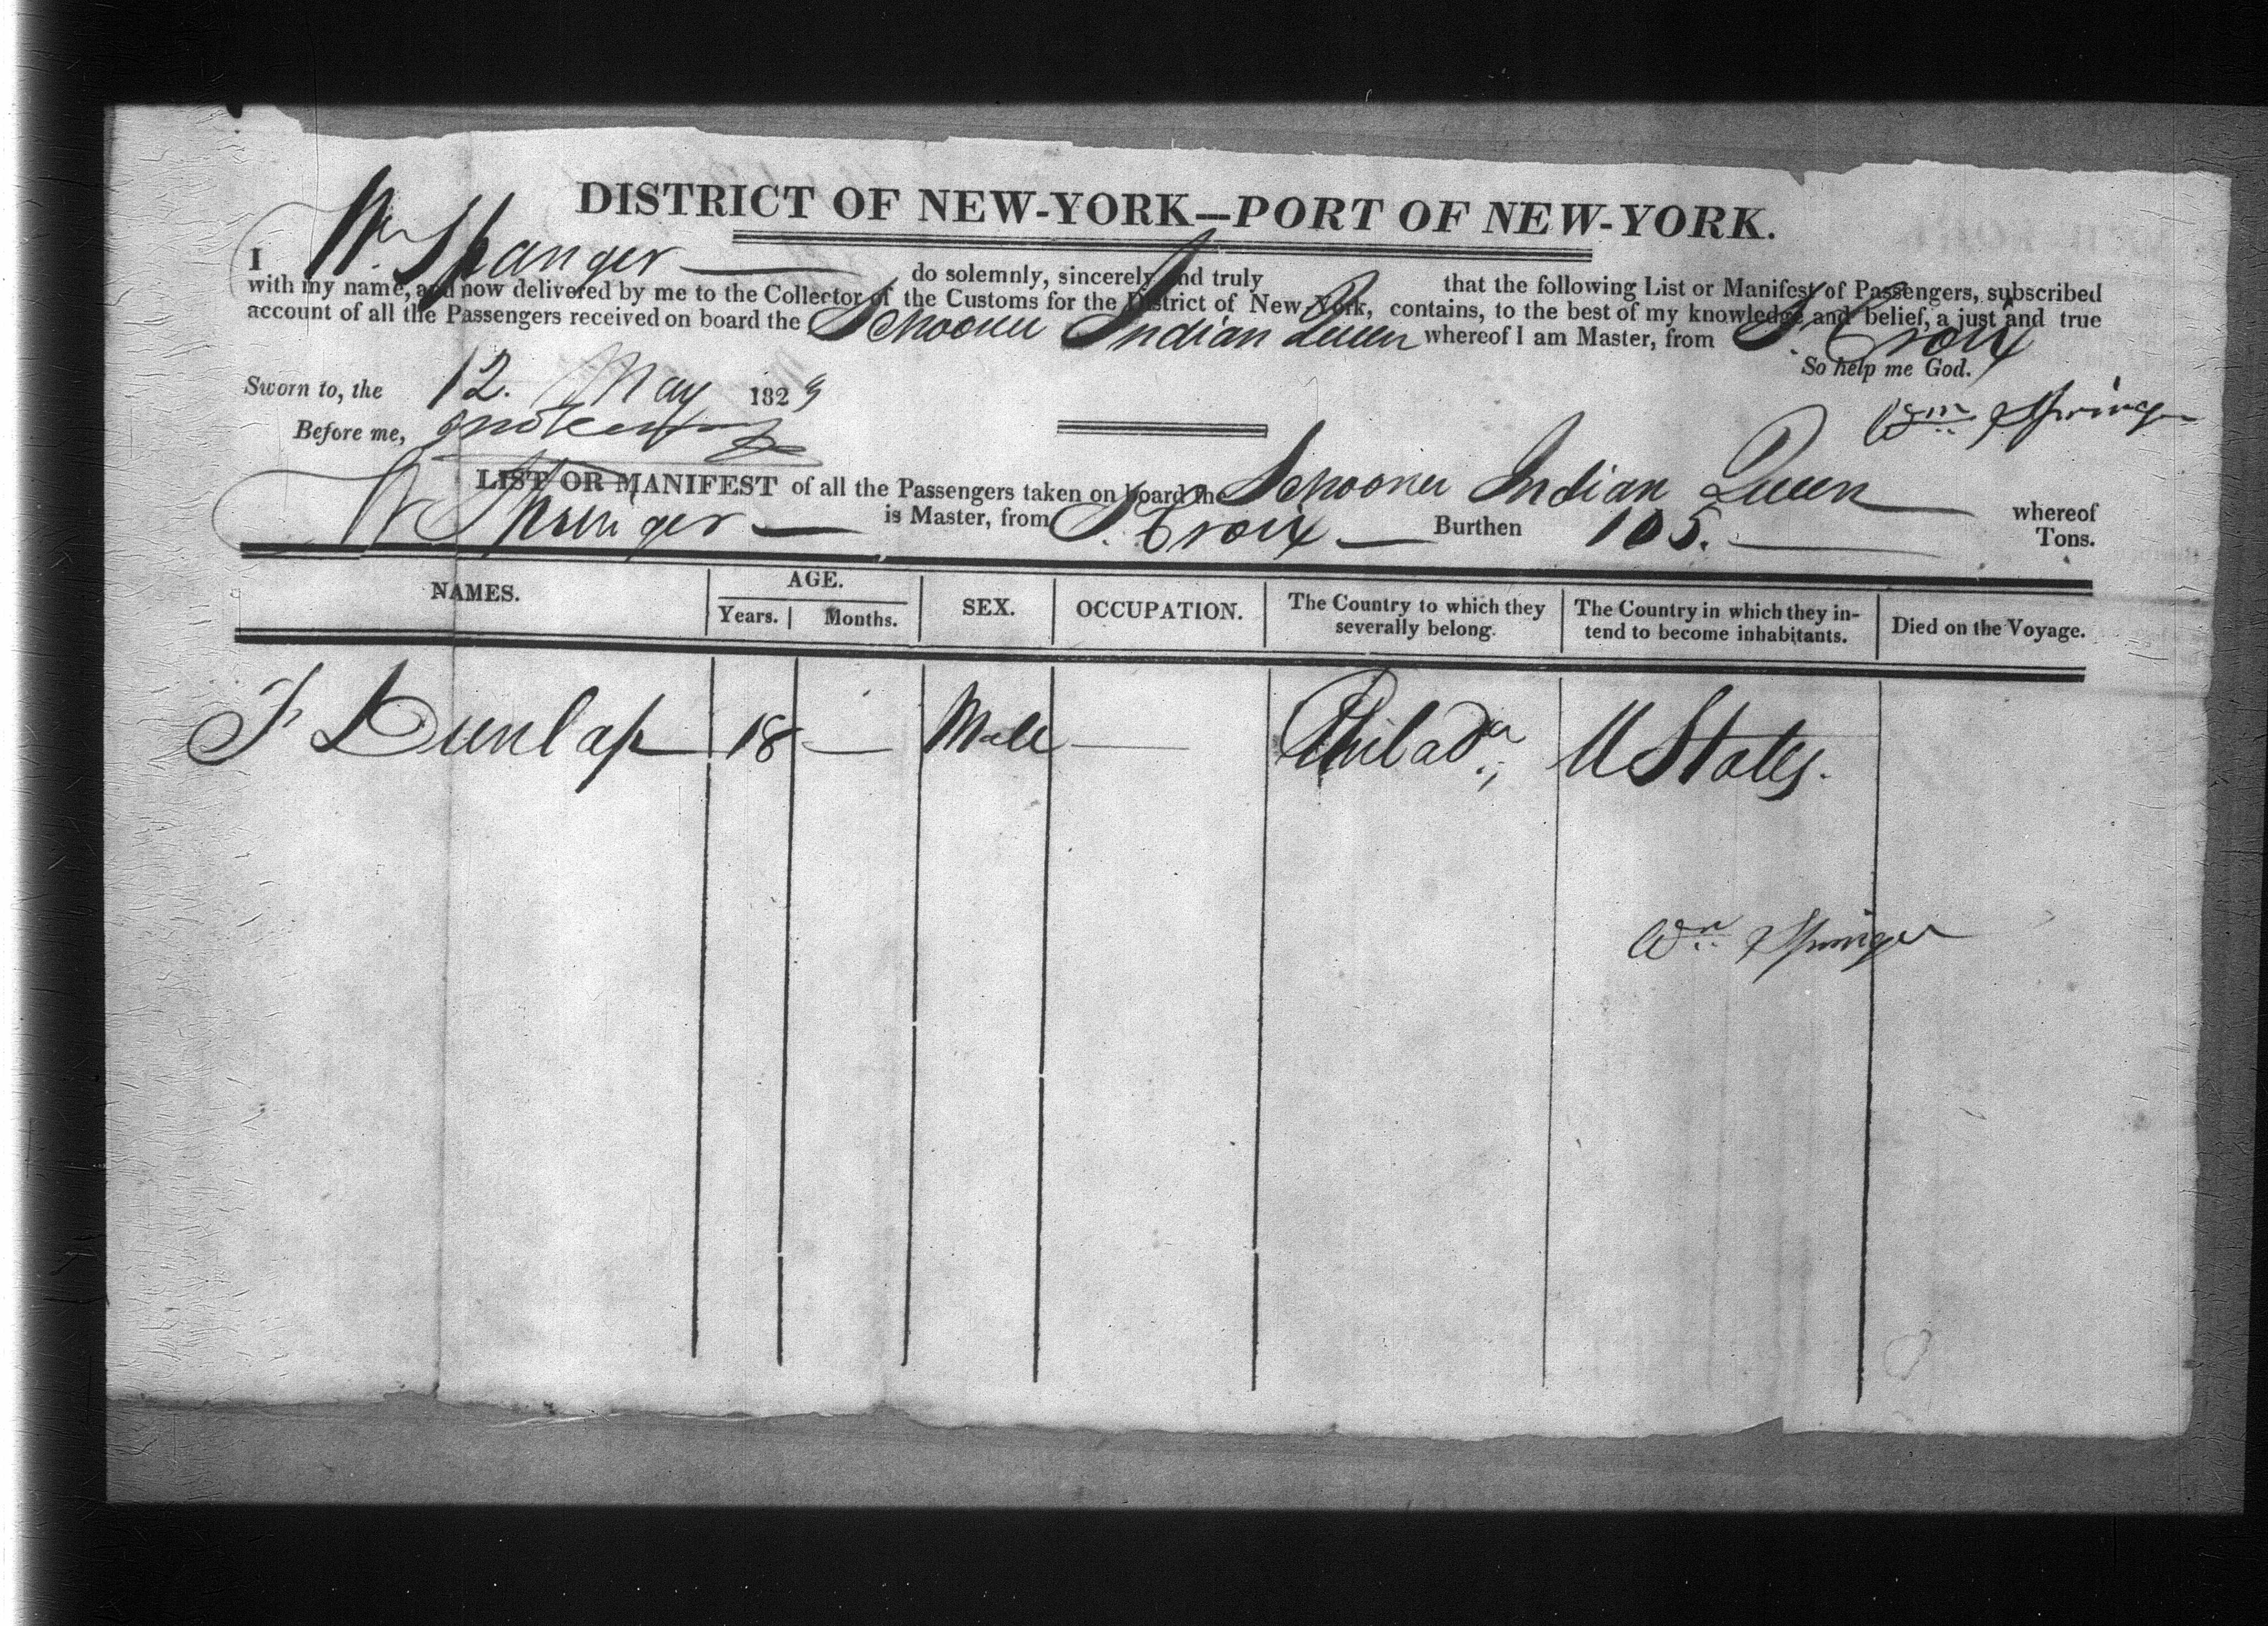 DISTRICT OF NEW-YORK—PORT OF NEW-YORK.
I Wm Spranger do solemnly, sincerely and truly that the following List or Manifest of Passengers, subscribed
with my name, and now delivered by me to the Collector of the Customs for the District of New York, contains, to the best of my knowledge and belief, a just and true
account of all the Passengers received on board the Schooner Indian Queen whereof I am Master, from St Croix
So help me God.
Sworn to, the 12. May 1829
Wm Springer
Before me,
LIST OR MANIFEST of all the Passengers taken on board the Schooner Indian Queen whereof
W Springer is Master, from St Croix Burthen 105. Tons.
NAMES. AGE. SEX. OCCUPATION. The Country to which they severally belong. The Country in which they in-tend to become inhabitants. Died on the Voyage.
Years. Months.
F Dunlap 18 — Male — Philada., U States.
Wm Springer